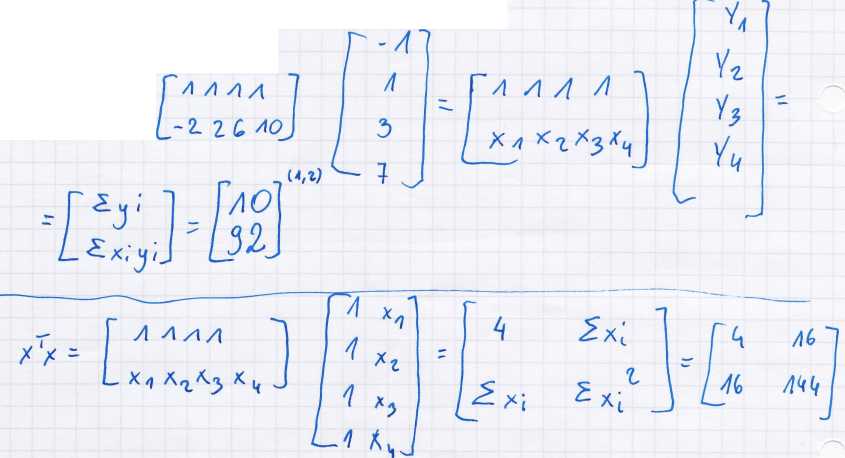 [1 1 1 1; -2 2 6 10] [-1; 1; 3; 7] = [1 1 1 1; x1 x2 x3 x4] [Y1; Y2; Y3; Y4] =
= [Σyi; Σxiyi] = [10; 92]^(1,2)
x^T x = [1 1 1 1; x1 x2 x3 x4] [1 x1; 1 x2; 1 x3; 1 x4] = [4 Σxi; Σxi Σxi²] = [4 16; 16 144]